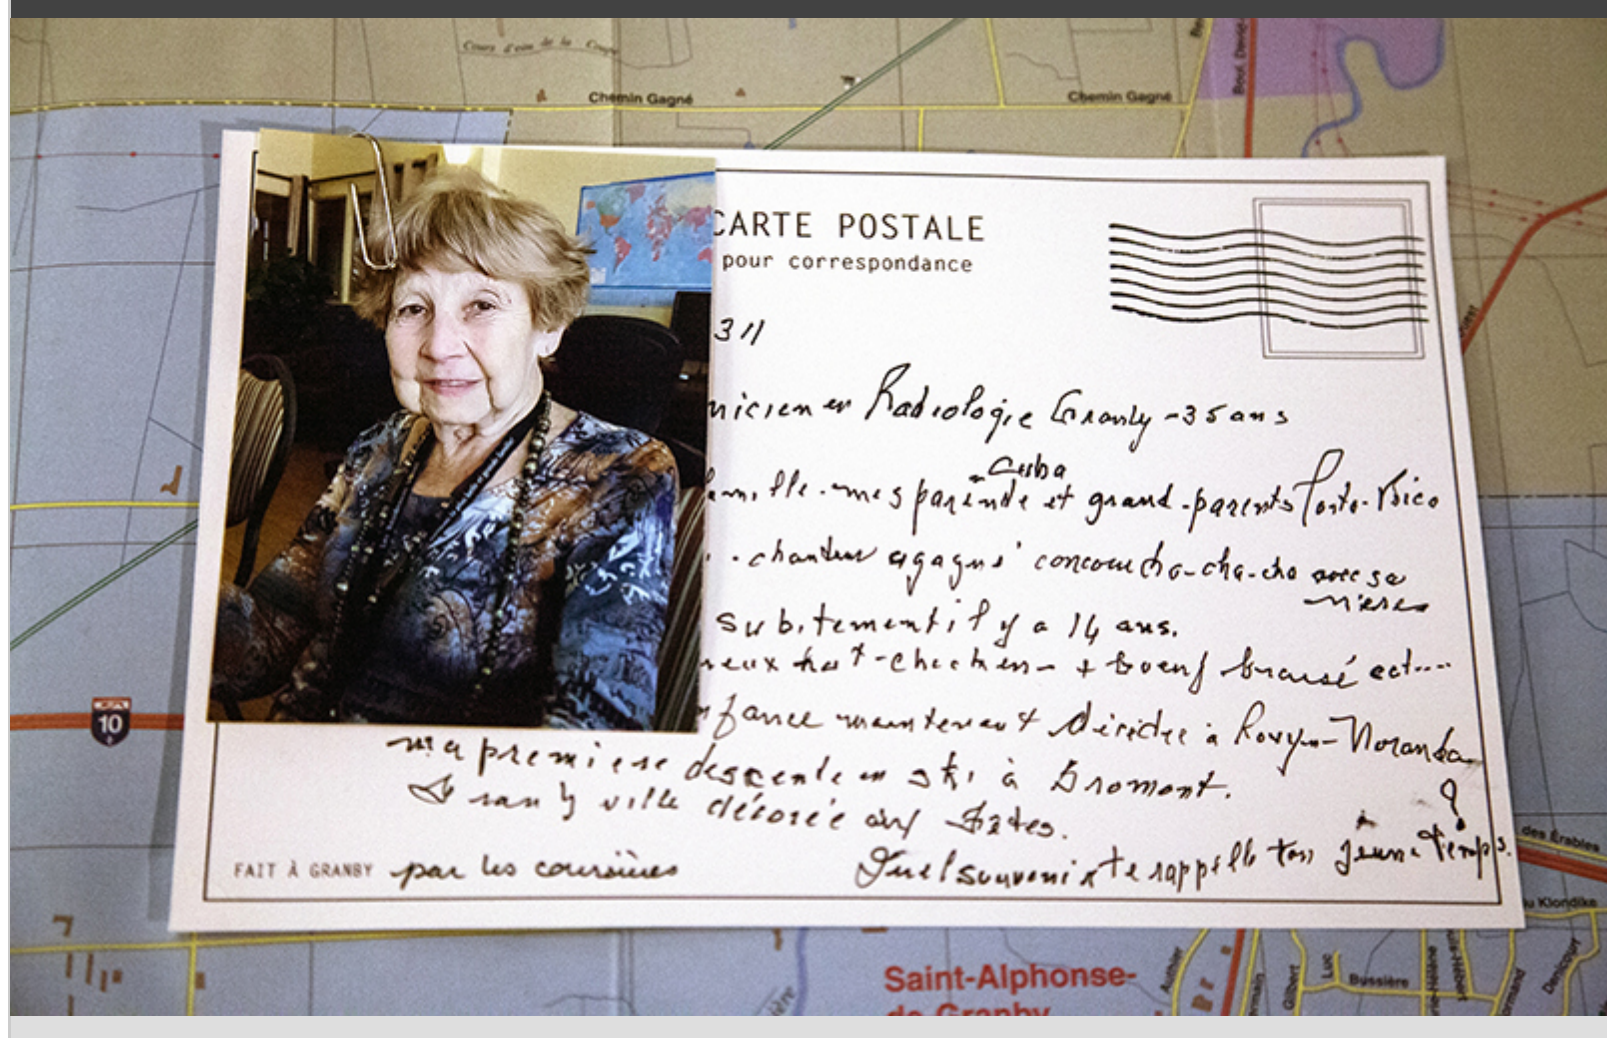 Cours d'eau de la Coupe
Chemin Gagné
Chemin Gagné
Boul. David
CARTE POSTALE
pour correspondance
311
nicien en Radiologie Granby - 35 ans
Cuba
famille - mes parents et grand-parents Porto-Rico
chanteur a gagné concour cha-cha-cha avec sa
subitement il y a 14 ans.
reux hot-chicken - + boeuf braisé ect....
nfance maintenant décédée à Rouyn-Noranda
ma premiere descente en ski à Bromont.
Granby ville décorée aux Fêtes.
FAIT À GRANBY par les coursières
Quel souvenir te rappelle ton jeune temps.
?
10
des Érables
du Klondike
Saint-Alphonse-
de-Granby
Authier
Gilbert
Luc
Bussière
Denicourt